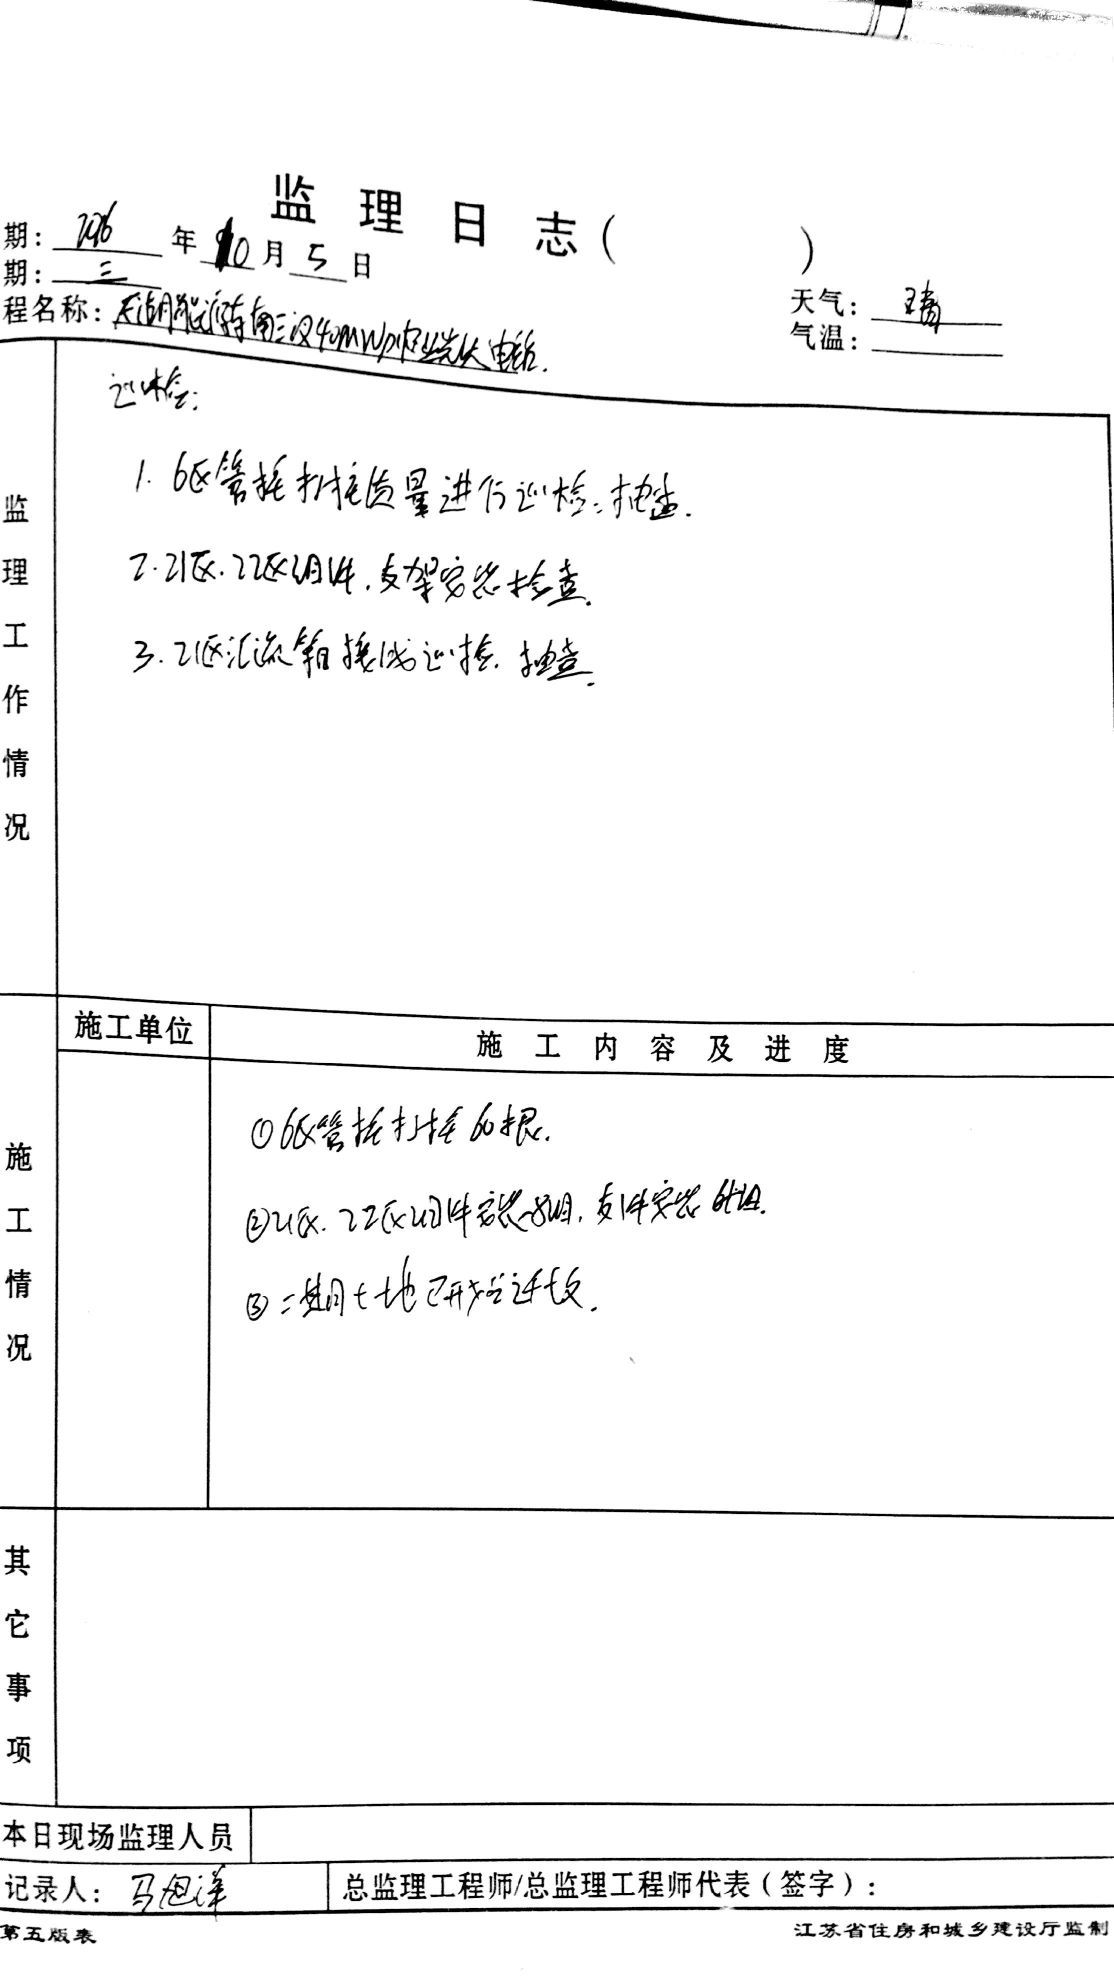 监理日志( )
期: 2016 年 10 月 5 日
期: 三
天气: 晴
气温:
程名称: 南三 40MWp 光伏电站.
巡检:
监理工作情况
1. 6区管桩打桩质量进行巡检、抽查.
2. 21区. 22区组件. 支架安装检查.
3. 21区汇流箱接线巡检. 抽查.
施工单位
施工内容及进度
施工情况
①6区管桩打桩60根.
②21区. 22区组件安装 组, 支件安装 组.
③二期土地已开始
其它事项
本日现场监理人员
记录人: 马旭洋
总监理工程师/总监理工程师代表(签字):
第五版表
江苏省住房和城乡建设厅监制